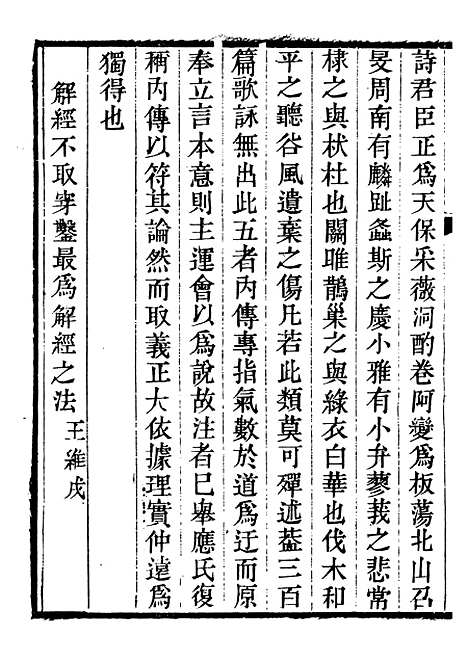 詩君臣正爲天保采薇泂酌卷阿變爲板蕩北山召
旻周南有麟趾螽斯之慶小雅有小弁蓼莪之悲常
棣之與杕杜也關雎鵲巢之與綠衣白華也伐木和
平之聽谷風遺棄之傷凡若此類莫可殫述葢三百
篇歌詠無出此五者內傳專指氣數於道爲迂而原
奉立言本意則主運會以爲說故注者已舉應氏復
稱內傳以符其論然而取義正大依據理實仲遠爲
獨得也
解經不取穿鑿最爲解經之法王維戊